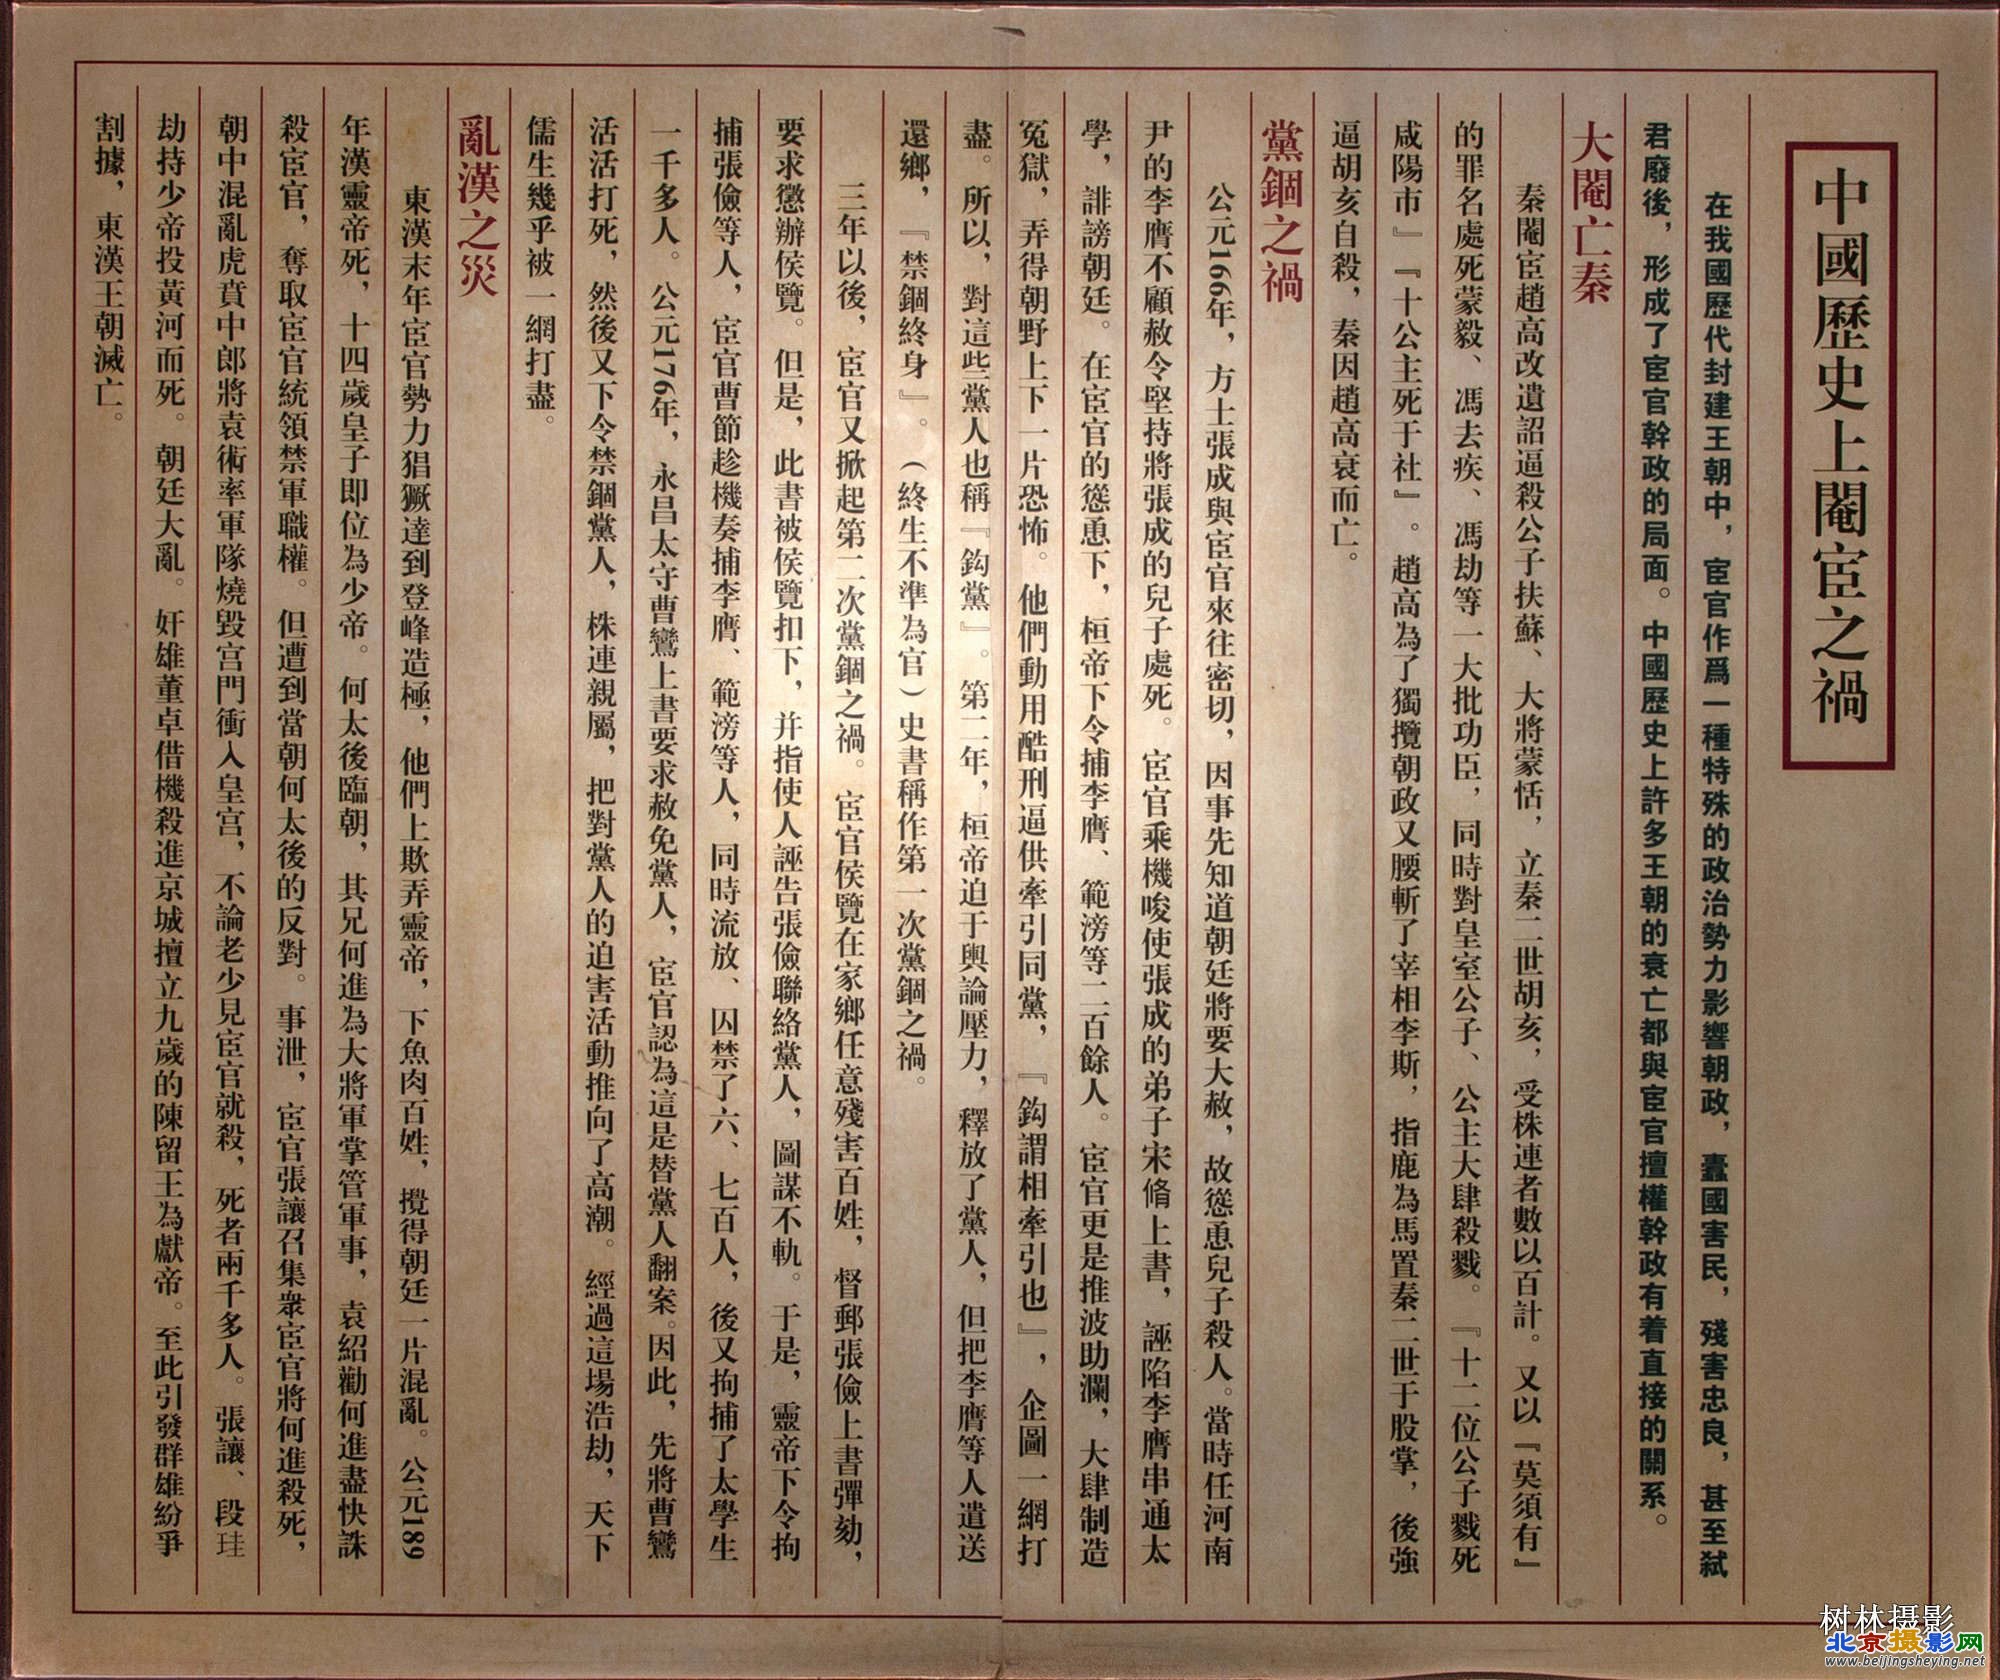 中國歷史上閹宦之禍
在我國歷代封建王朝中，宦官作爲一種特殊的政治勢力影響朝政，蠹國害民，殘害忠良，甚至弑
君廢後，形成了宦官幹政的局面。中國歷史上許多王朝的衰亡都與宦官擅權幹政有着直接的關系。
大閹亡秦
秦閹宦趙高改遺詔逼殺公子扶蘇、大將蒙恬，立秦二世胡亥，受株連者數以百計。又以『莫須有』
的罪名處死蒙毅、馮去疾、馮劫等一大批功臣，同時對皇室公子、公主大肆殺戮。『十二位公子戮死
咸陽市』『十公主死于社』。趙高為了獨攬朝政又腰斬了宰相李斯，指鹿為馬置秦二世于股掌，後強
逼胡亥自殺，秦因趙高衰而亡。
黨錮之禍
公元166年，方士張成與宦官來往密切，因事先知道朝廷將要大赦，故慫恿兒子殺人。當時任河南
尹的李膺不顧赦令堅持將張成的兒子處死。宦官乘機唆使張成的弟子宋脩上書，誣陷李膺串通太
學，誹謗朝廷。在宦官的慫恿下，桓帝下令捕李膺、範滂等二百餘人。宦官更是推波助瀾，大肆制造
冤獄，弄得朝野上下一片恐怖。他們動用酷刑逼供牽引同黨，『鈎謂相牽引也』，企圖一網打
盡。所以，對這些黨人也稱『鈎黨』。第二年，桓帝迫于輿論壓力，釋放了黨人，但把李膺等人遣送
還鄉，『禁錮終身』。（終生不準為官）史書稱作第一次黨錮之禍。
三年以後，宦官又掀起第二次黨錮之禍。宦官侯覽在家鄉任意殘害百姓，督郵張儉上書彈劾，
要求懲辦侯覽。但是，此書被侯覽扣下，并指使人誣告張儉聯絡黨人，圖謀不軌。于是，靈帝下令拘
捕張儉等人，宦官曹節趁機奏捕李膺、範滂等人，同時流放、囚禁了六、七百人，後又拘捕了太學生
一千多人。公元176年，永昌太守曹鸞上書要求赦免黨人，宦官認為這是替黨人翻案。因此，先將曹鸞
活活打死，然後又下令禁錮黨人，株連親屬，把對黨人的迫害活動推向了高潮。經過這場浩劫，天下
儒生幾乎被一網打盡。
亂漢之災
東漢末年宦官勢力猖獗達到登峰造極，他們上欺弄靈帝，下魚肉百姓，攪得朝廷一片混亂。公元189
年漢靈帝死，十四歲皇子即位為少帝。何太後臨朝，其兄何進為大將軍掌管軍事，袁紹勸何進盡快誅
殺宦官，奪取宦官統領禁軍職權。但遭到當朝何太後的反對。事泄，宦官張讓召集衆宦官將何進殺死，
朝中混亂虎賁中郎將袁術率軍隊燒毀宫門衝入皇宫，不論老少見宦官就殺，死者兩千多人。張讓、段珪
劫持少帝投黃河而死。朝廷大亂。奸雄董卓借機殺進京城擅立九歲的陳留王為獻帝。至此引發群雄紛爭
割據，東漢王朝滅亡。
树林摄影
北京摄影网
www.beijingsheying.net